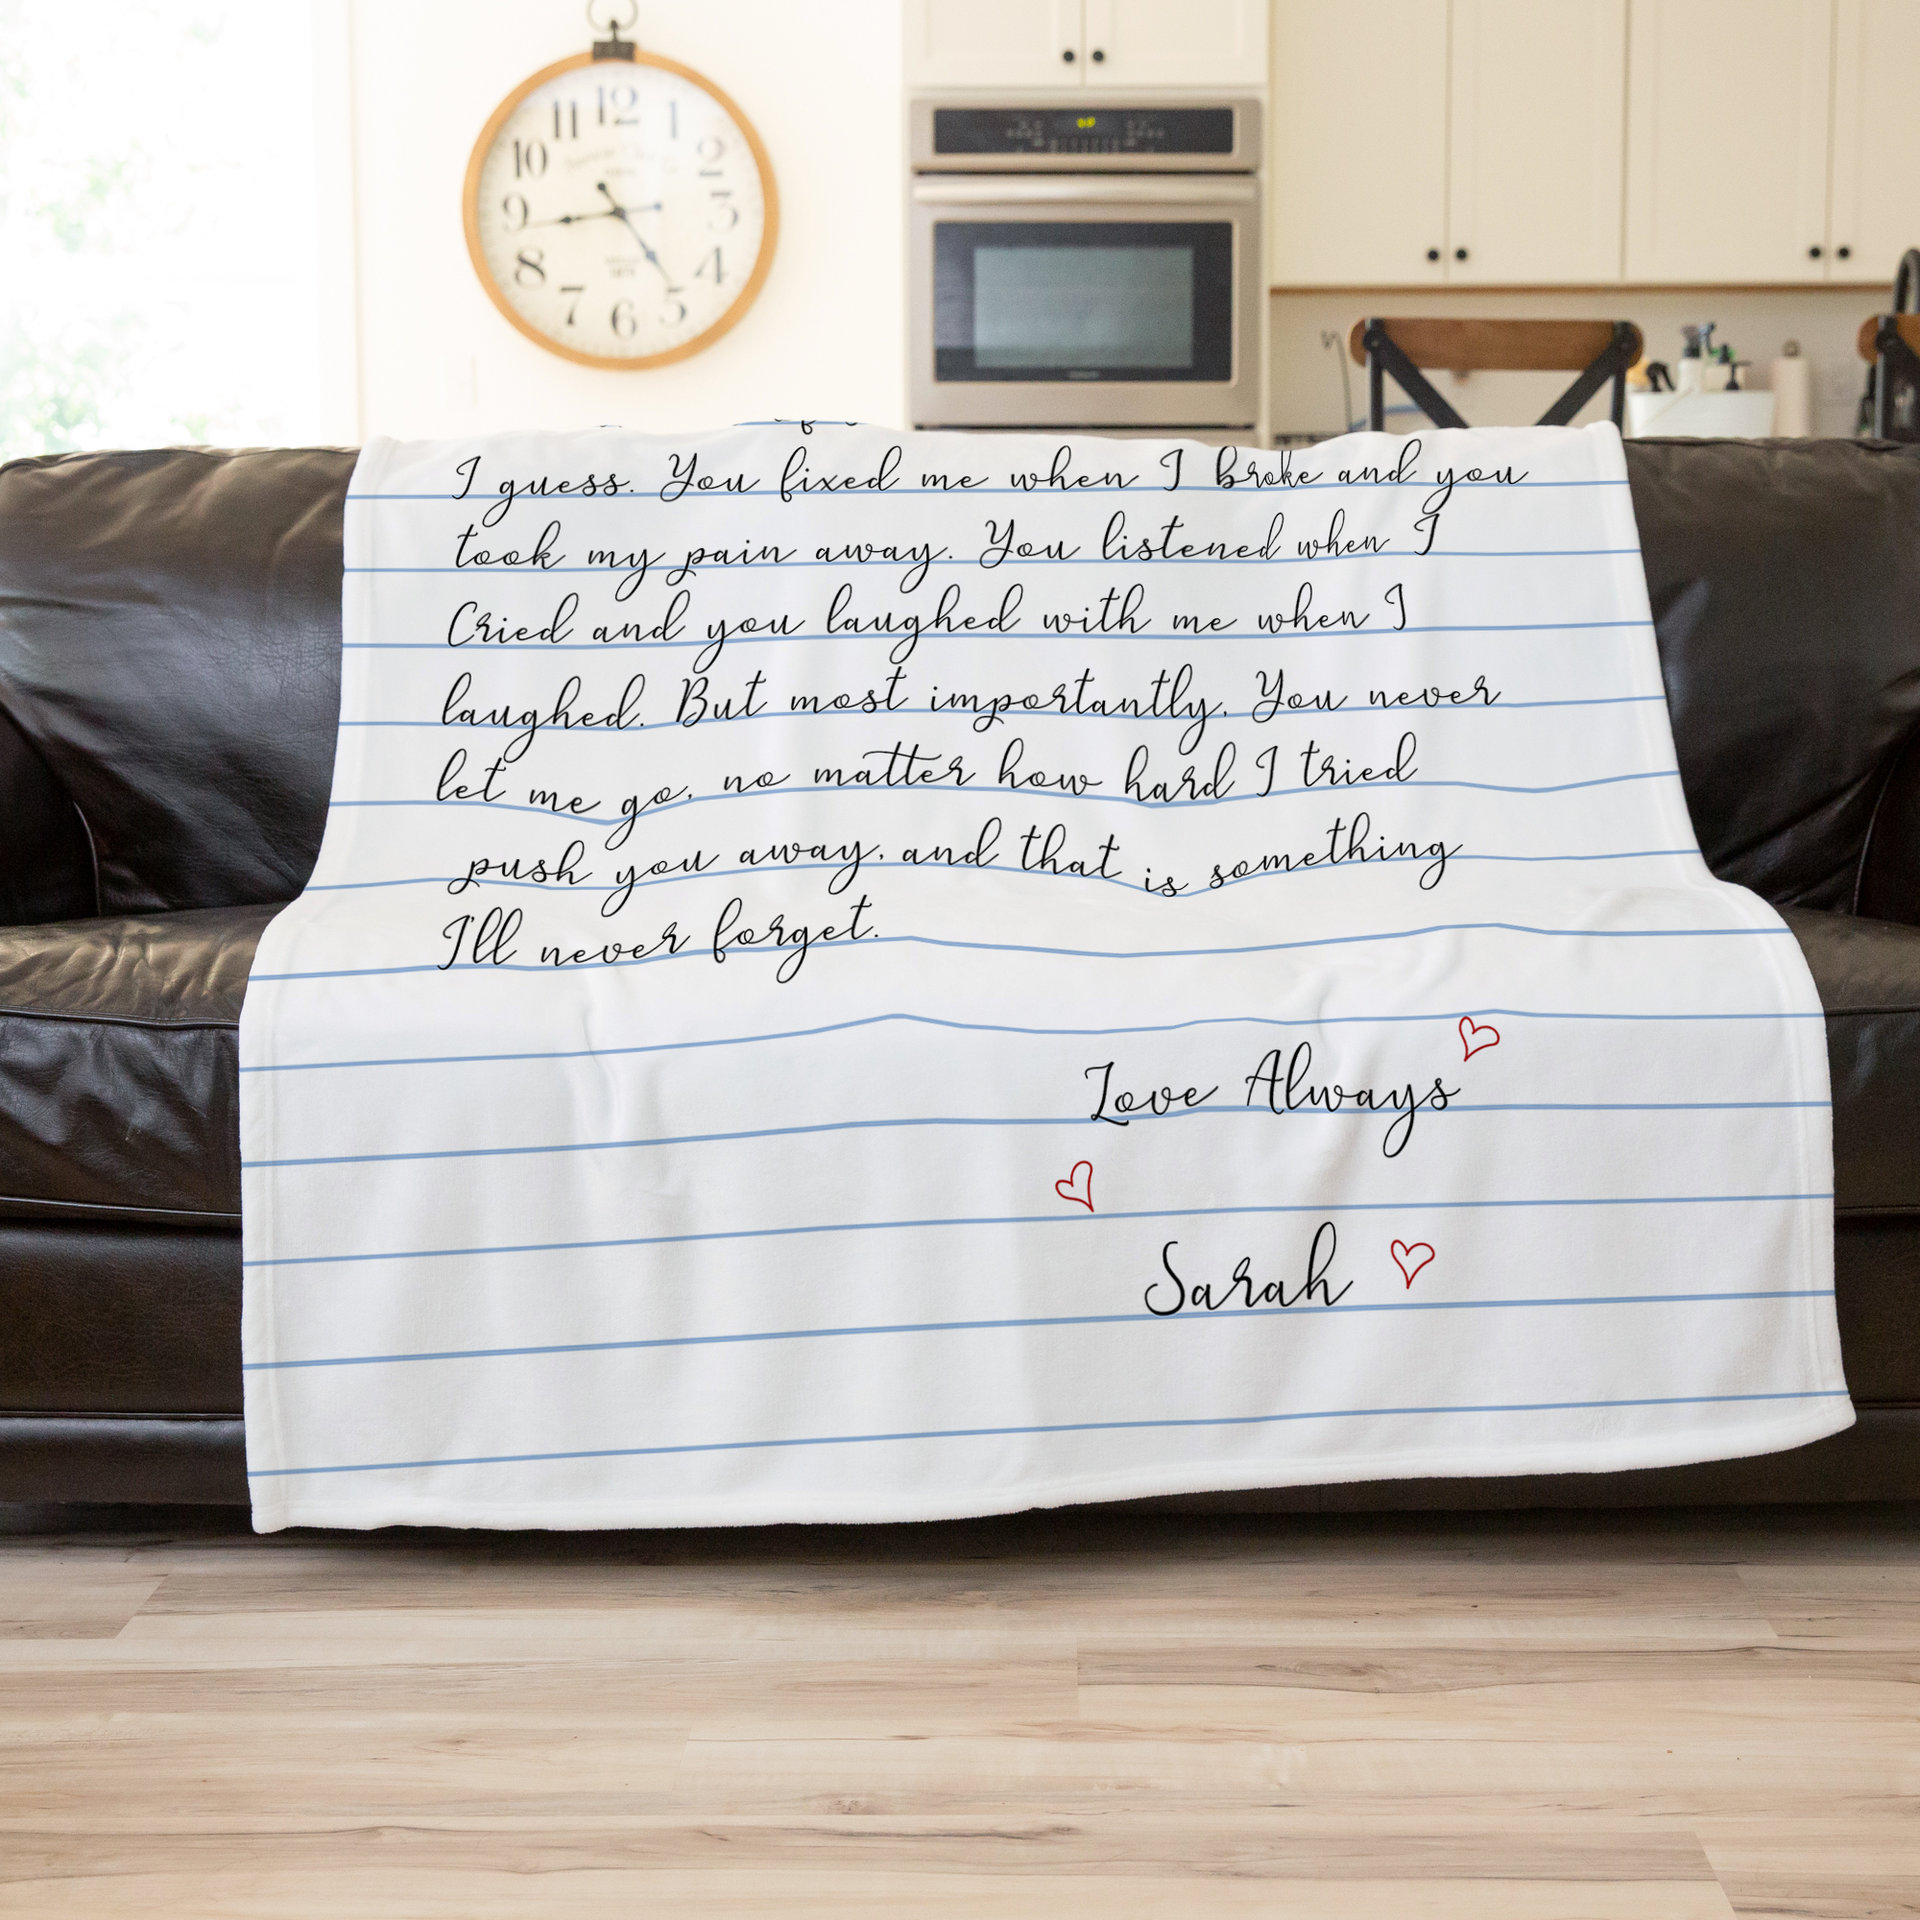 11 12 1
10 2
9 3
8 4
7 6 5
I guess. You fixed me when I broke and you
took my pain away. You listened when I
Cried and you laughed with me when I
laughed. But most importantly, You never
let me go, no matter how hard I tried
push you away, and that is something
I'll never forget.
Love Always
Sarah